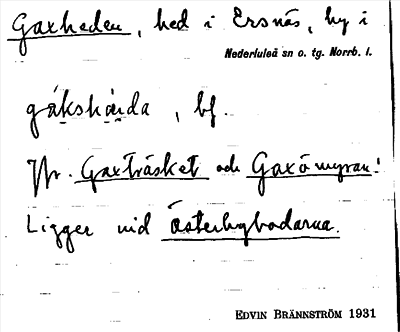 Gaxheden, hed i Ersnäs, by i
Nederluleå sn o. tg. Norrb. l.
bf.
Jfr. Gaxträsket och Gaxåmyran!
Ligger vid Österbybodarna.
EDVIN BRÄNNSTRÖM 1931